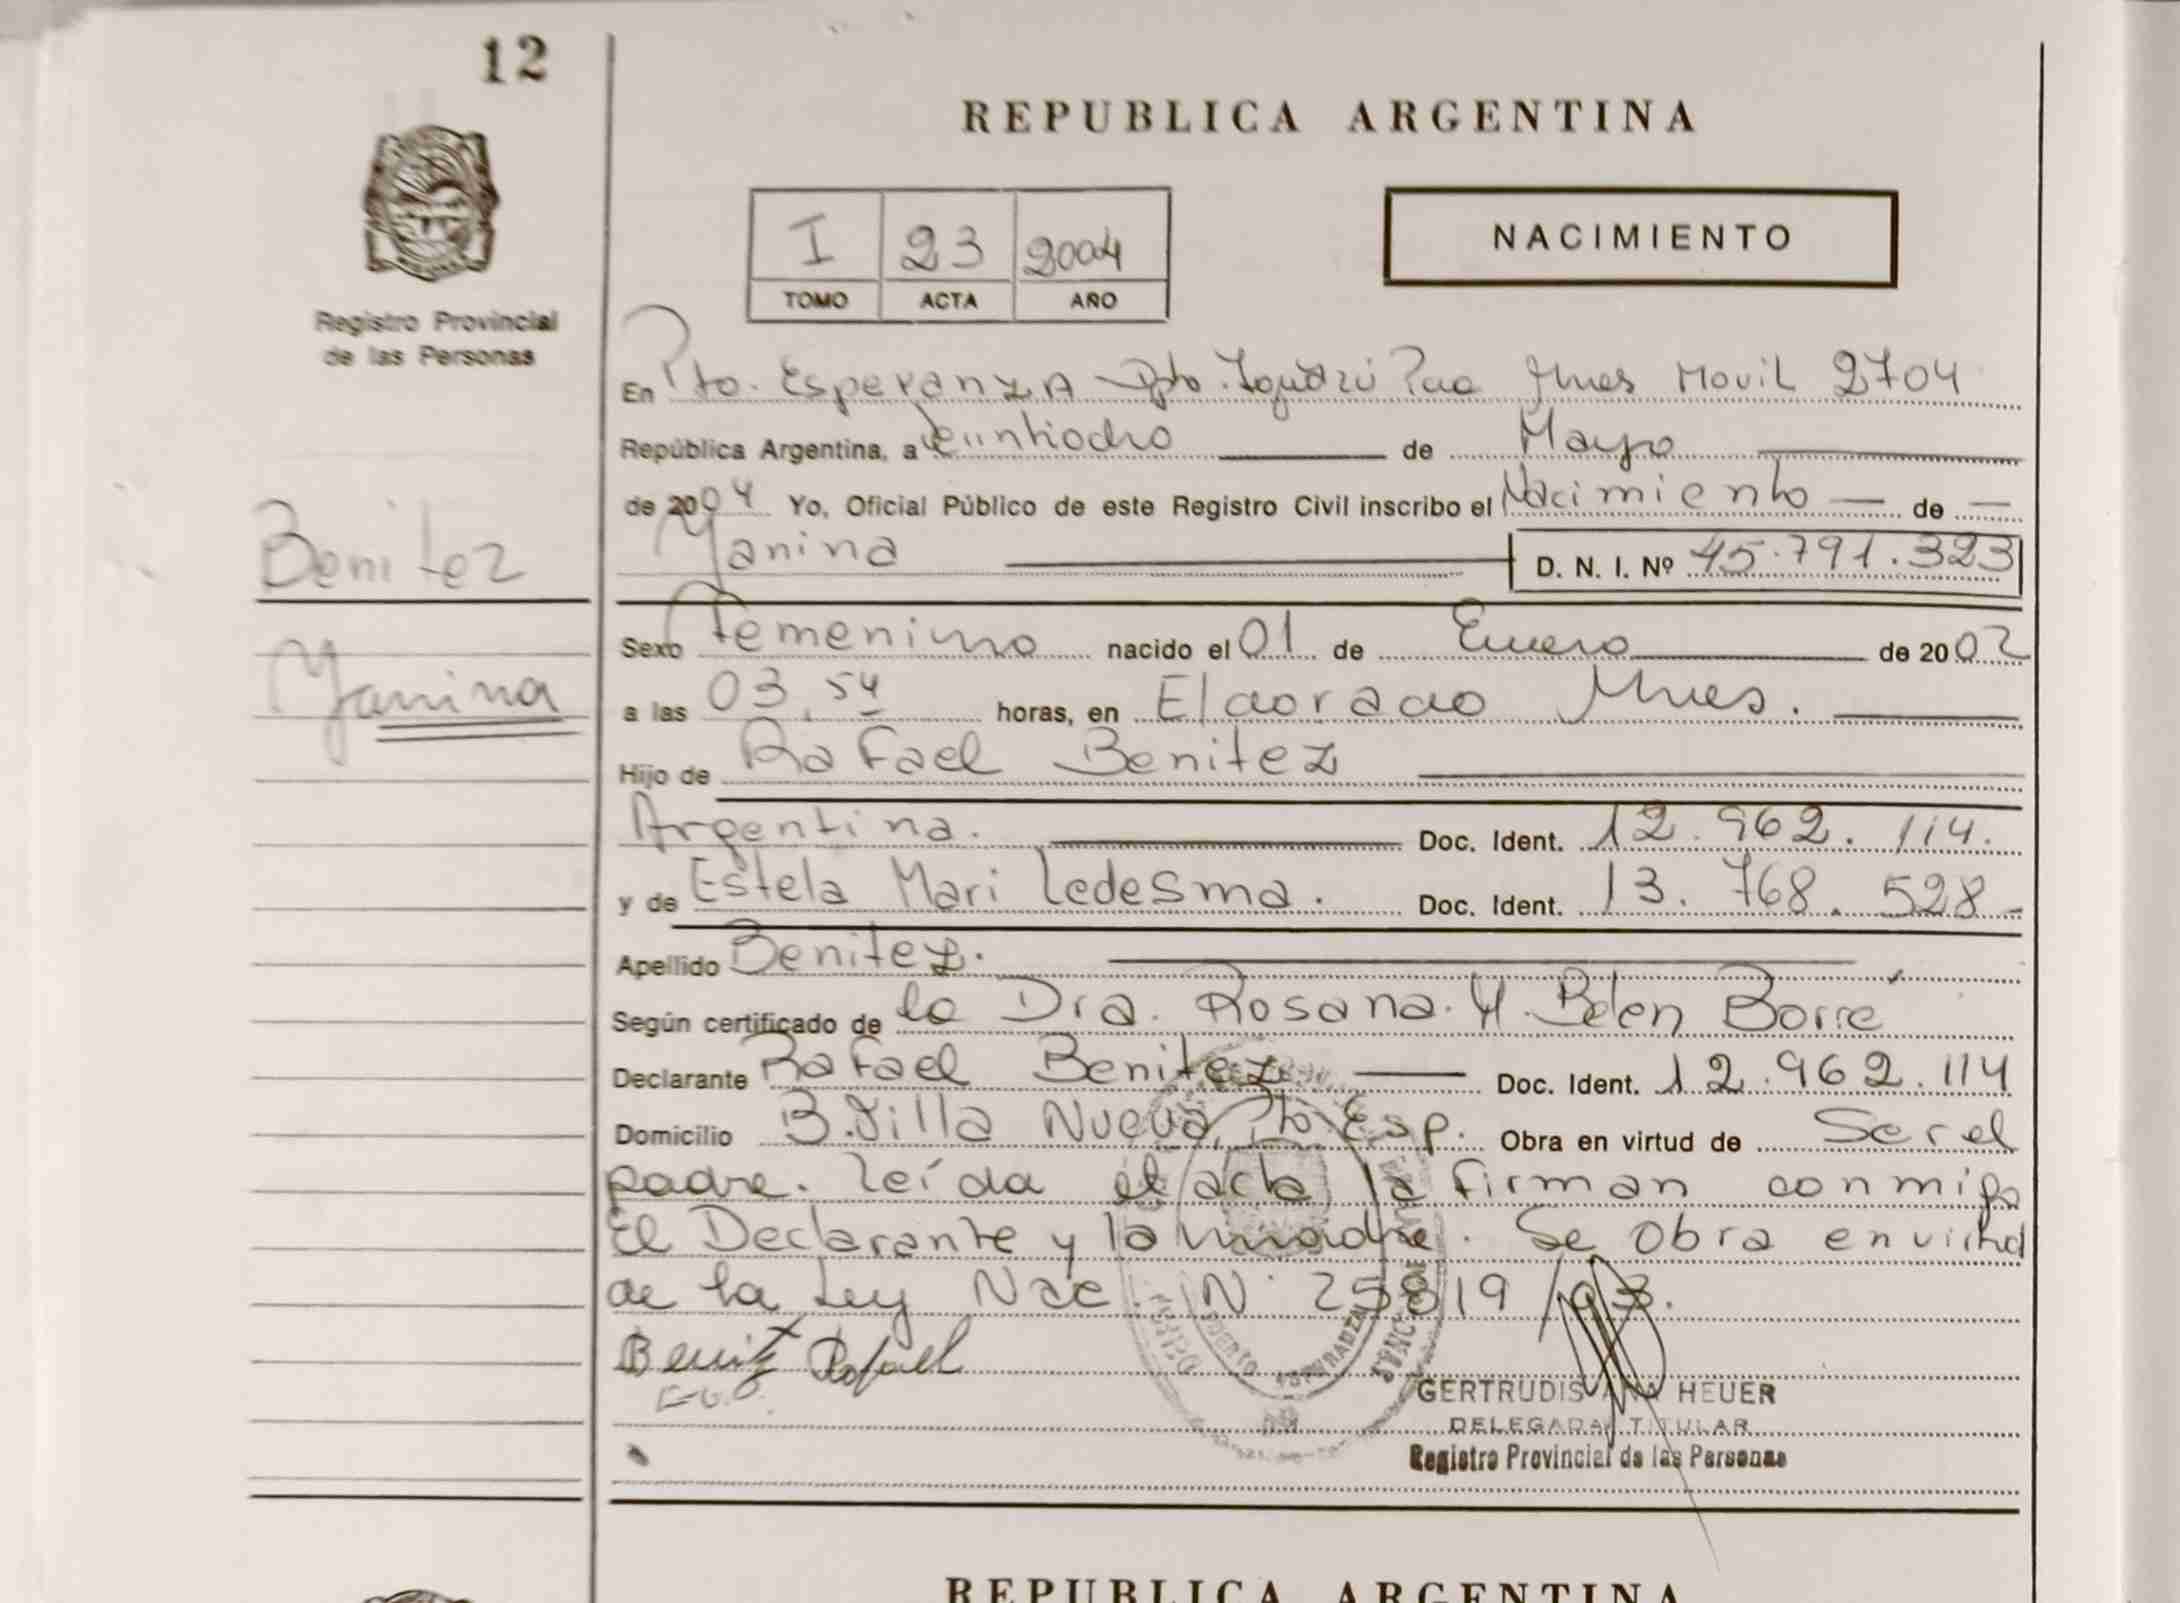 12
REPUBLICA ARGENTINA
I 23 2004
TOMO ACTA AÑO
NACIMIENTO
Registro Provincial
de las Personas
En Pto. Esperanza Dpto. Iguazú Mnes Movil 2704
República Argentina, a Veintiocho de Mayo
de 2004 Yo, Oficial Público de este Registro Civil inscribo el Nacimiento — de —
Yanina D. N. I. Nº 45.791.323
Benitez
Yanina
Sexo Femenino nacido el 01 de Enero de 2002
a las 03,54 horas, en Eldorado Mnes.
Hijo de Rafael Benitez
Argentina. Doc. Ident. 12.962.114.
y de Estela Mari Ledesma. Doc. Ident. 13.768.528-
Apellido Benitez.
Según certificado de la Dra. Rosana. Belen Borré
Declarante Rafael Benitez Doc. Ident. 12.962.114
Domicilio B. Villa Nueva, Pto Esp. Obra en virtud de Ser el
padre. leída el acta la firman conmigo
El Declarante y la madre. Se obra en virtud
de la Ley Nac. N° 25819/03.
Benitez Rafael
GERTRUDIS ANA HEUER
DELEGADA TITULAR
Registro Provincial de las Personas
REPUBLICA ARGENTINA